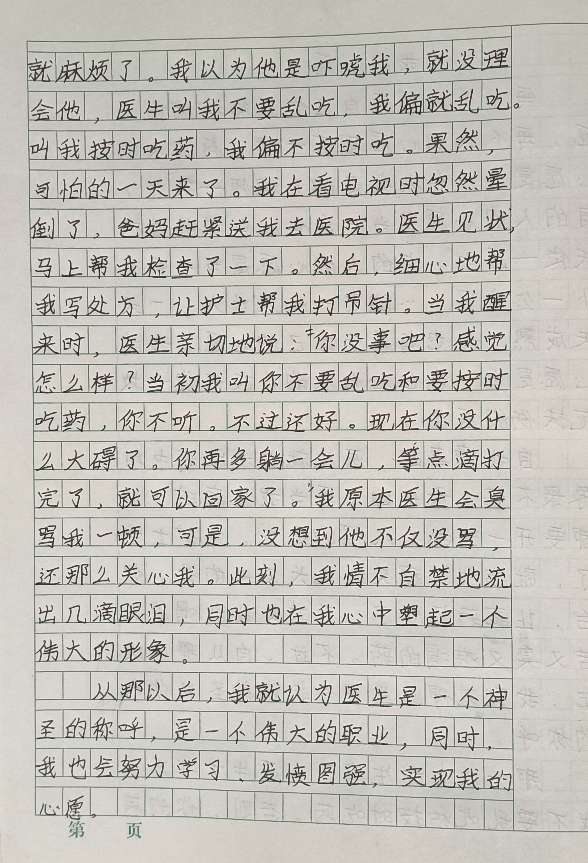 就麻烦了。我以为他是吓唬我，就没理
会他，医生叫我不要乱吃，我偏就乱吃。
叫我按时吃药，我偏不按时吃。果然，
可怕的一天来了。我在看电视时忽然晕
倒了，爸妈赶紧送我去医院。医生见状，
马上帮我检查了一下。然后，细心地帮
我写处方，让护士帮我打吊针。当我醒
来时，医生亲切地说：“你没事吧？感觉
怎么样？当初我叫你不要乱吃和要按时
吃药，你不听。不过还好。现在你没什
么大碍了。你再多躺一会儿，等点滴打
完了，就可以回家了。”我原本医生会臭
骂我一顿，可是，没想到他不仅没骂，
还那么关心我。此刻，我情不自禁地流
出几滴眼泪，同时也在我心中塑起一个
伟大的形象。
从那以后，我就认为医生是一个神
圣的称呼，是一个伟大的职业，同时，
我也会努力学习、发愤图强，实现我的
心愿。
第 页